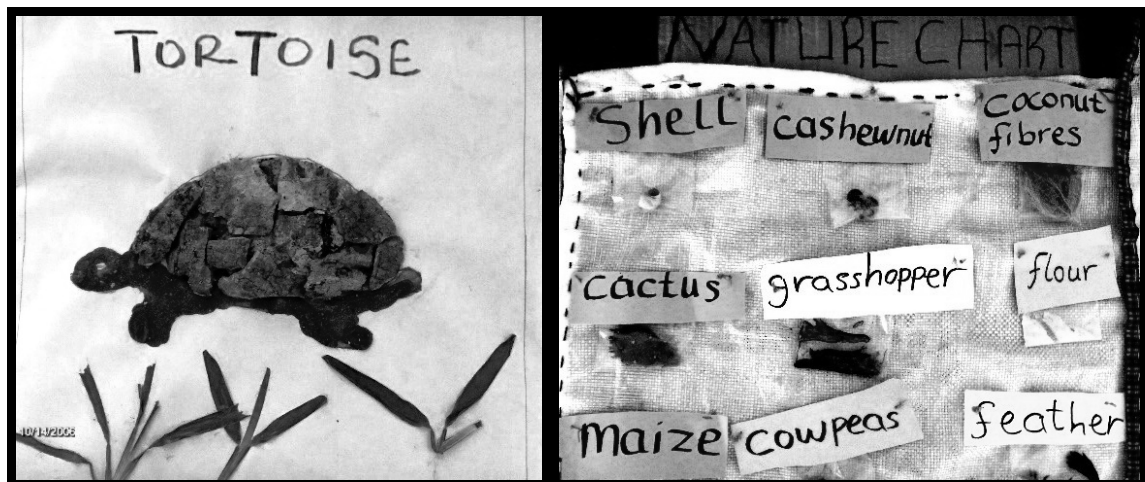 TORTOISE
10/14/2006
NATURE CHART
Shell
cashewnut
coconut
fibres
cactus
grasshopper
flour
maize
cowpeas
feather